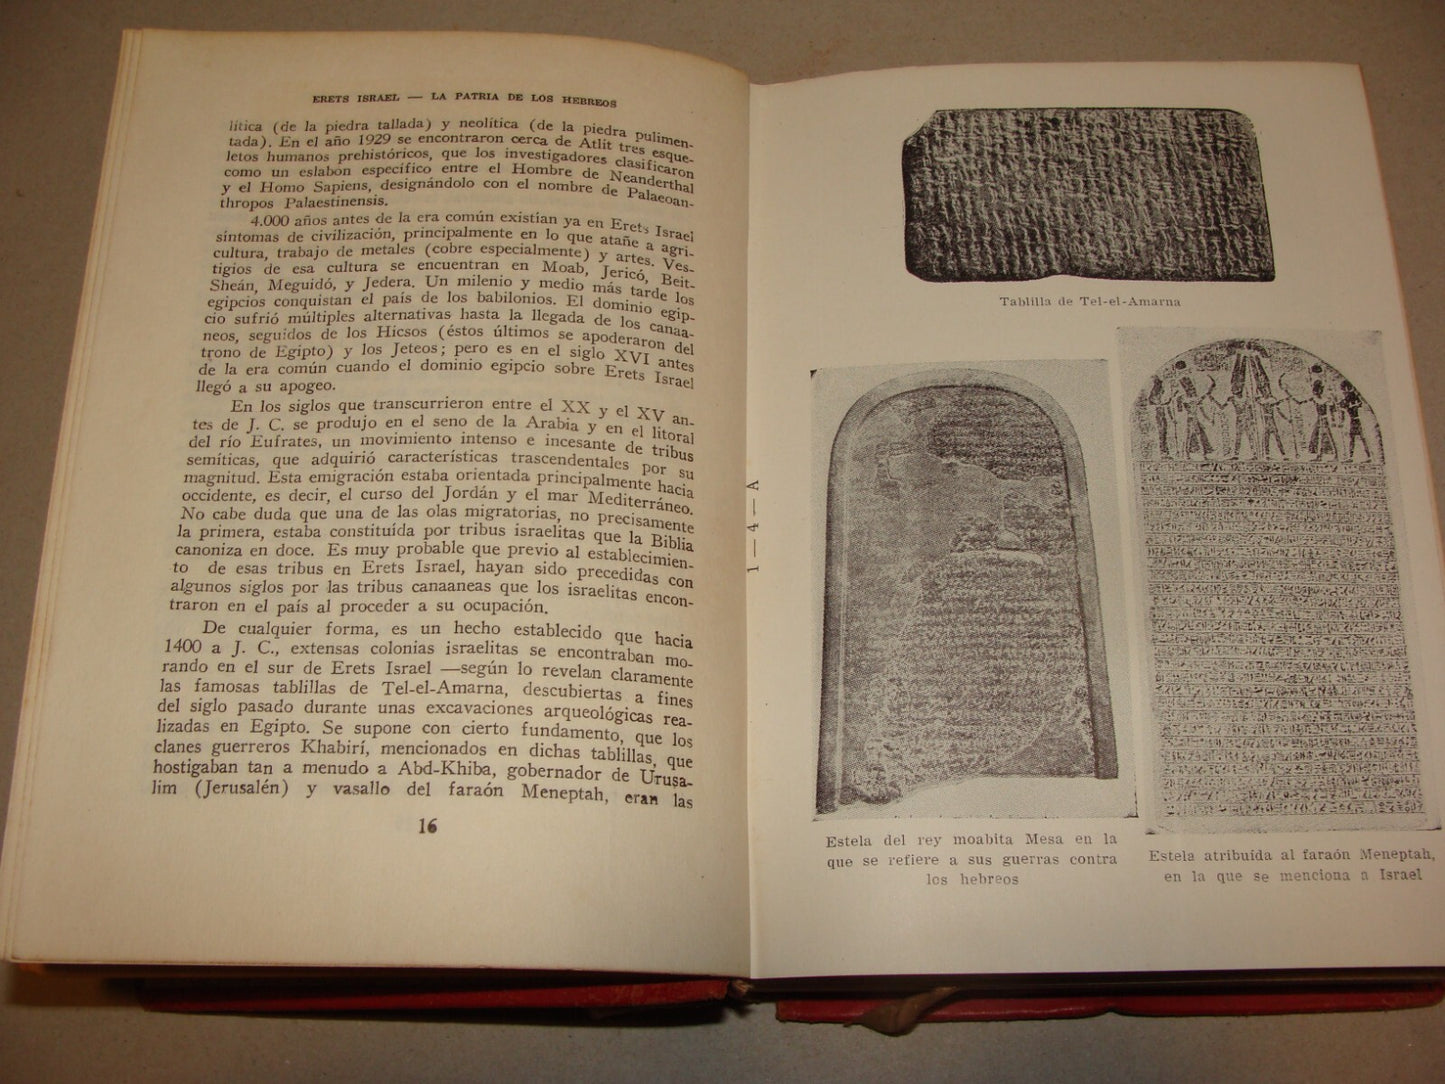 ERETS ISRAEL — LA PATRIA DE LOS HEBREOS
lítica (de la piedra tallada) y neolítica (de la piedra pulimen-
tada). En el año 1929 se encontraron cerca de Atlit tres esque-
letos humanos prehistóricos, que los investigadores clasificaron
como un eslabón específico entre el Hombre de Neanderthal
y el Homo Sapiens, designándolo con el nombre de Palaeoan-
thropos Palaestinensis.
4.000 años antes de la era común existían ya en Erets Israel
síntomas de civilización, principalmente en lo que atañe a agri-
cultura, trabajo de metales (cobre especialmente) y artes. Ves-
tigios de esa cultura se encuentran en Moab, Jericó, Beit-
Sheán, Meguidó, y Jedera. Un milenio y medio más tarde los
egipcios conquistan el país de los babilonios. El dominio egip-
cio sufrió múltiples alternativas hasta la llegada de los canaa-
neos, seguidos de los Hicsos (éstos últimos se apoderaron del
trono de Egipto) y los Jeteos; pero es en el siglo XVI antes
de la era común cuando el dominio egipcio sobre Erets Israel
llegó a su apogeo.
En los siglos que transcurrieron entre el XX y el XV an-
tes de J. C. se produjo en el seno de la Arabia y en el litoral
del río Eufrates, un movimiento intenso e incesante de tribus
semíticas, que adquirió características trascendentales por su
magnitud. Esta emigración estaba orientada principalmente hacia
occidente, es decir, el curso del Jordán y el mar Mediterráneo.
No cabe duda que una de las olas migratorias, no precisamente
la primera, estaba constituída por tribus israelitas que la Biblia
canoniza en doce. Es muy probable que previo al establecimien-
to de esas tribus en Erets Israel, hayan sido precedidas con
algunos siglos por las tribus canaaneas que los israelitas encon-
traron en el país al proceder a su ocupación.
De cualquier forma, es un hecho establecido que hacia
1400 a J. C., extensas colonias israelitas se encontraban mo-
rando en el sur de Erets Israel —según lo revelan claramente
las famosas tablillas de Tel-el-Amarna, descubiertas a fines
del siglo pasado durante unas excavaciones arqueológicas rea-
lizadas en Egipto. Se supone con cierto fundamento, que los
clanes guerreros Khabirí, mencionados en dichas tablillas, que
hostigaban tan a menudo a Abd-Khiba, gobernador de Urusa-
lim (Jerusalén) y vasallo del faraón Meneptah, eran las
16
1 — 4 — A
Tablilla de Tel-el-Amarna
Estela del rey moabita Mesa en la
que se refiere a sus guerras contra
los hebreos
Estela atribuída al faraón Meneptah,
en la que se menciona a Israel